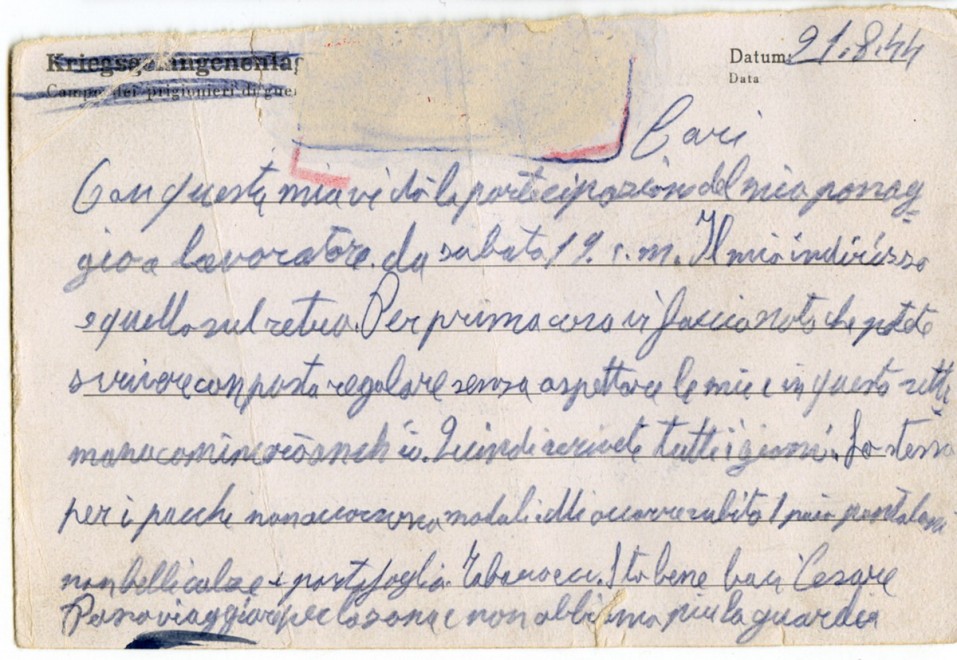 Kriegsgefangenenlag
Campo dei prigionieri di gue
Datum: 21.8.44
Data
Cari
Con questa mia vi dò la partecipazione del mio passag-
gio a lavoratore da sabato 19. c.m. Il mio indirizzo
e quello sul retro. Per prima cosa vi faccio noto che potete
scrivere con posta regolare senza aspettare le mie e in questa setti
mana comincerò anch'io. Quindi scrivete tutti i giorni. Lo stesso
per i pacchi non occorrono moduli. Mi occorre subito 1 paio pantaloni
non belli calze e portafoglio. Tabacco ecc. Sto bene baci Cesare
Posso viaggiare per la zona e non abbiamo più la guardia